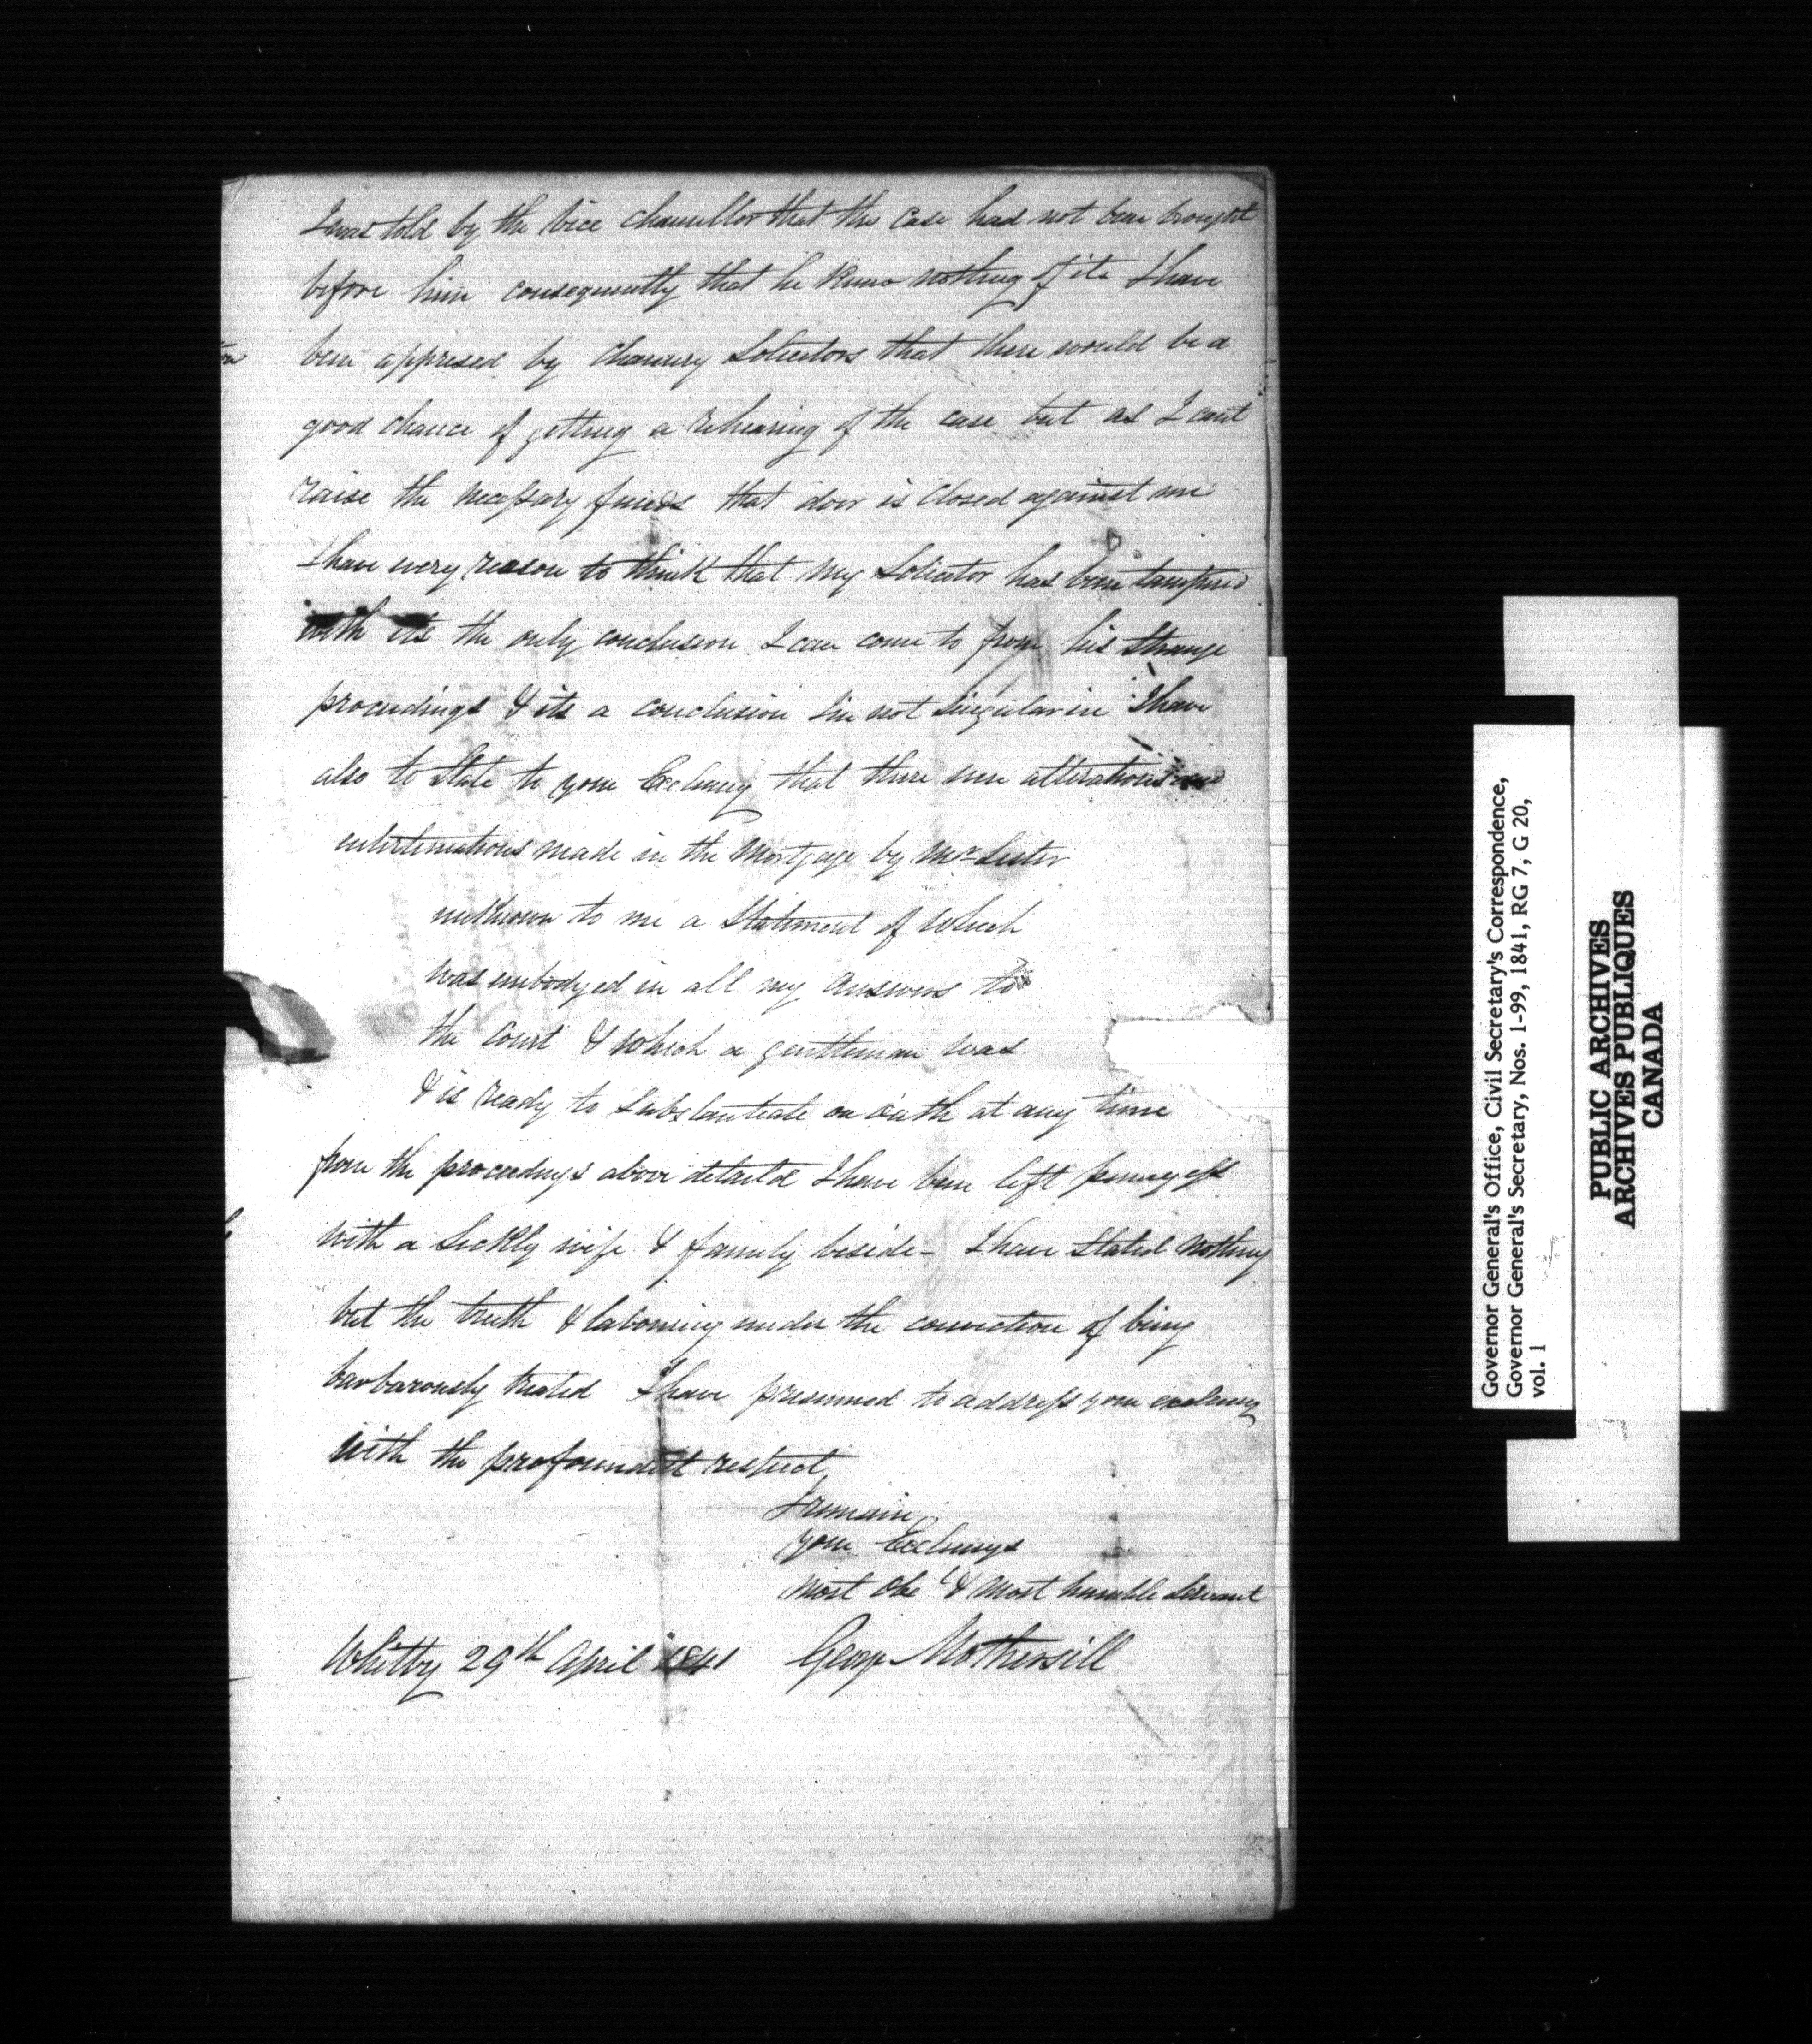 I was told by the vice chancellor that the case had not been brought
before him consequently that he knew nothing of it I have
been apprised by Chancery Solicitors that there would be a
good chance of getting a rehearing of the case but as I cant
raise the necessary funds that door is closed against me
I have every reason to think that my Solicitor has been tampered
with its the only conclusion I can come to from his strange
proceedings & its a conclusion Im not singular in I have
also to State to your Excelency that there were alterations and
enterlineations made in the Mortgage by Mr Lister
unknown to me a Statement of which
was embodyed in all my answers to
the Court & which a gentleman was
& is ready to substantiate on oath at any time
from the proceedings above detaild I have been left pennyless
with a sickly wife & family beside - I have stated nothing
but the truth & labouring under the conviction of being
barbarously treated I have presumed to address your exelency
with the profoundest respect
I remain
your Excelencys
most Obe t & most humble Servant
Whitby 29th April 1841 George Mothersill
Governor General's Office, Civil Secretary's Correspondence,
Governor General's Secretary, Nos. 1-99, 1841, RG 7, G 20,
vol. 1
PUBLIC ARCHIVES
ARCHIVES PUBLIQUES
CANADA